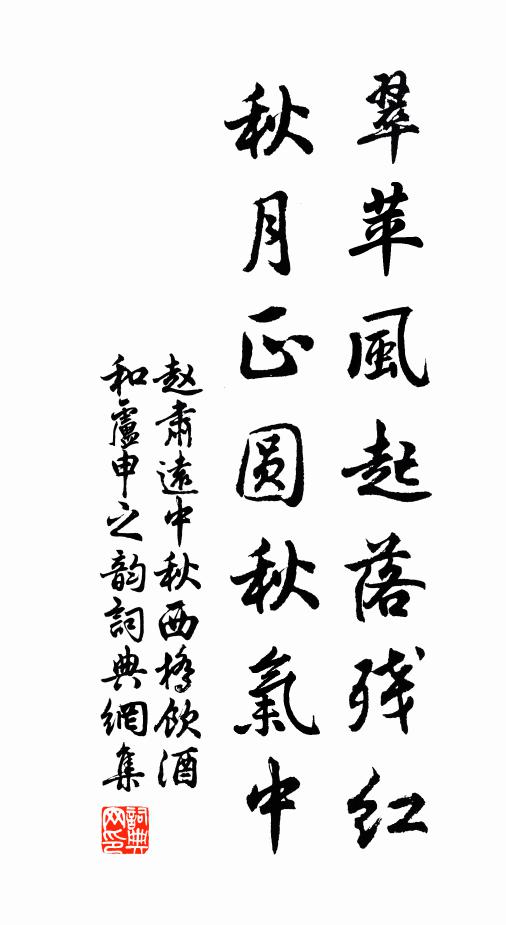 翠苹風起落残红
秋月正圆秋氣中
赵肃遠中秋西橋飲酒
和盧申之韵詞典網集
詞典
网印